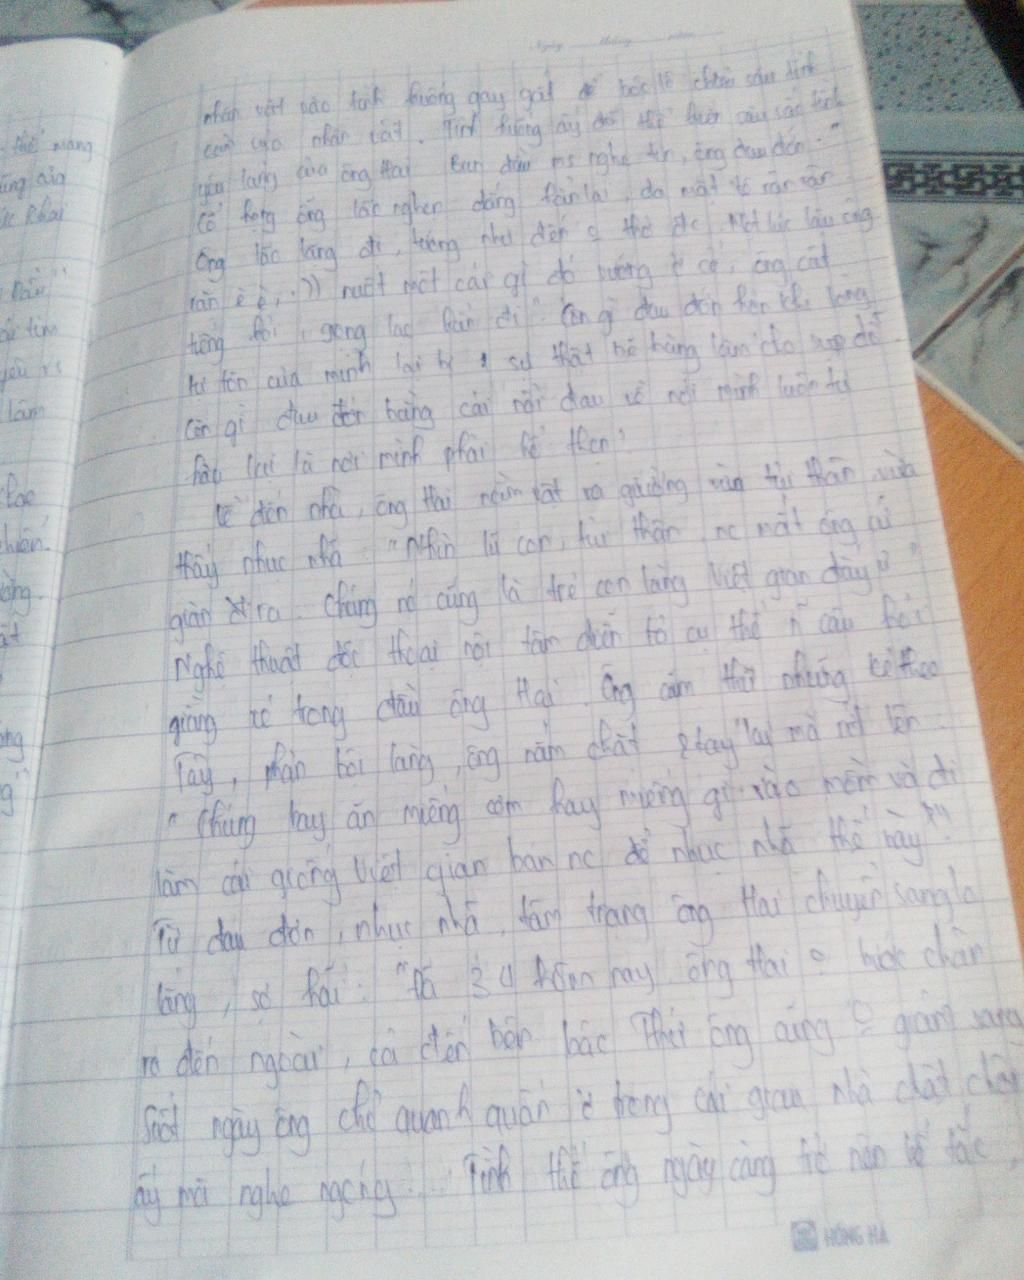 Ngày tháng năm
nhân vật vào tình huống gay gắt để bộc lộ chiều sâu tình
cảm của nhân vật. Tình huống ấy đã thể hiện sâu sắc tình
yêu làng của ông Hai. Ban đầu ms nghe tin, ông đau đớn: "
Cổ họng ông lão nghẹn đắng hẳn lại, da mặt tê rân rân
ông lão lặng đi, tưởng như đến thở đc. Một lúc lâu ông
rặn è è, nuốt một cái gì đó vướng ở cổ, ông cất
tiếng hỏi, giọng lạc hẳn đi". Còn gì đau đớn hơn khi lòng
tự tôn của mình lại bị 1 sự thật làm cho sụp đổ
Còn gì đau đớn bằng cái nỗi đau về nơi mình luôn tự
hào lại là nơi mình phải hổ thẹn!
Về đến nhà, ông Hai nằm vật ra giường vừa tủi thân, vừa
thấy nhục nhã: "Nhìn lũ con, tủi thân, nc mắt ông cứ
giàn ra. Chúng nó cũng là trẻ con làng Việt gian đấy ư"
Nghệ thuật độc thoại nội tâm diễn tả cụ thể câu hỏi
giằng xé trong đầu ông Hai. Ông căm thù những kẻ theo
Tây, phản bội làng, ông nắm chặt 2 tay lại mà rít lên
"Chúng bay ăn miếng cơm hay miếng gì vào mồm và đi
làm cái giống Việt gian bán nc để nhục nhã thế này"!
Từ đau đớn, nhục nhã, tâm trạng ông Hai chuyển sang lo
lắng, sợ hãi: "Đã 3 4 hôm nay ông Hai bước chân
ra đến ngoài, cả đến bên bác Thứ ông cũng giám sang
Suốt ngày ông chỉ quanh quẩn ở trong cái gian nhà chật chội
ấy mà nghe ngóng.... Tình thế ông ngày càng trở nên bế tắc,
HỒNG HÀ